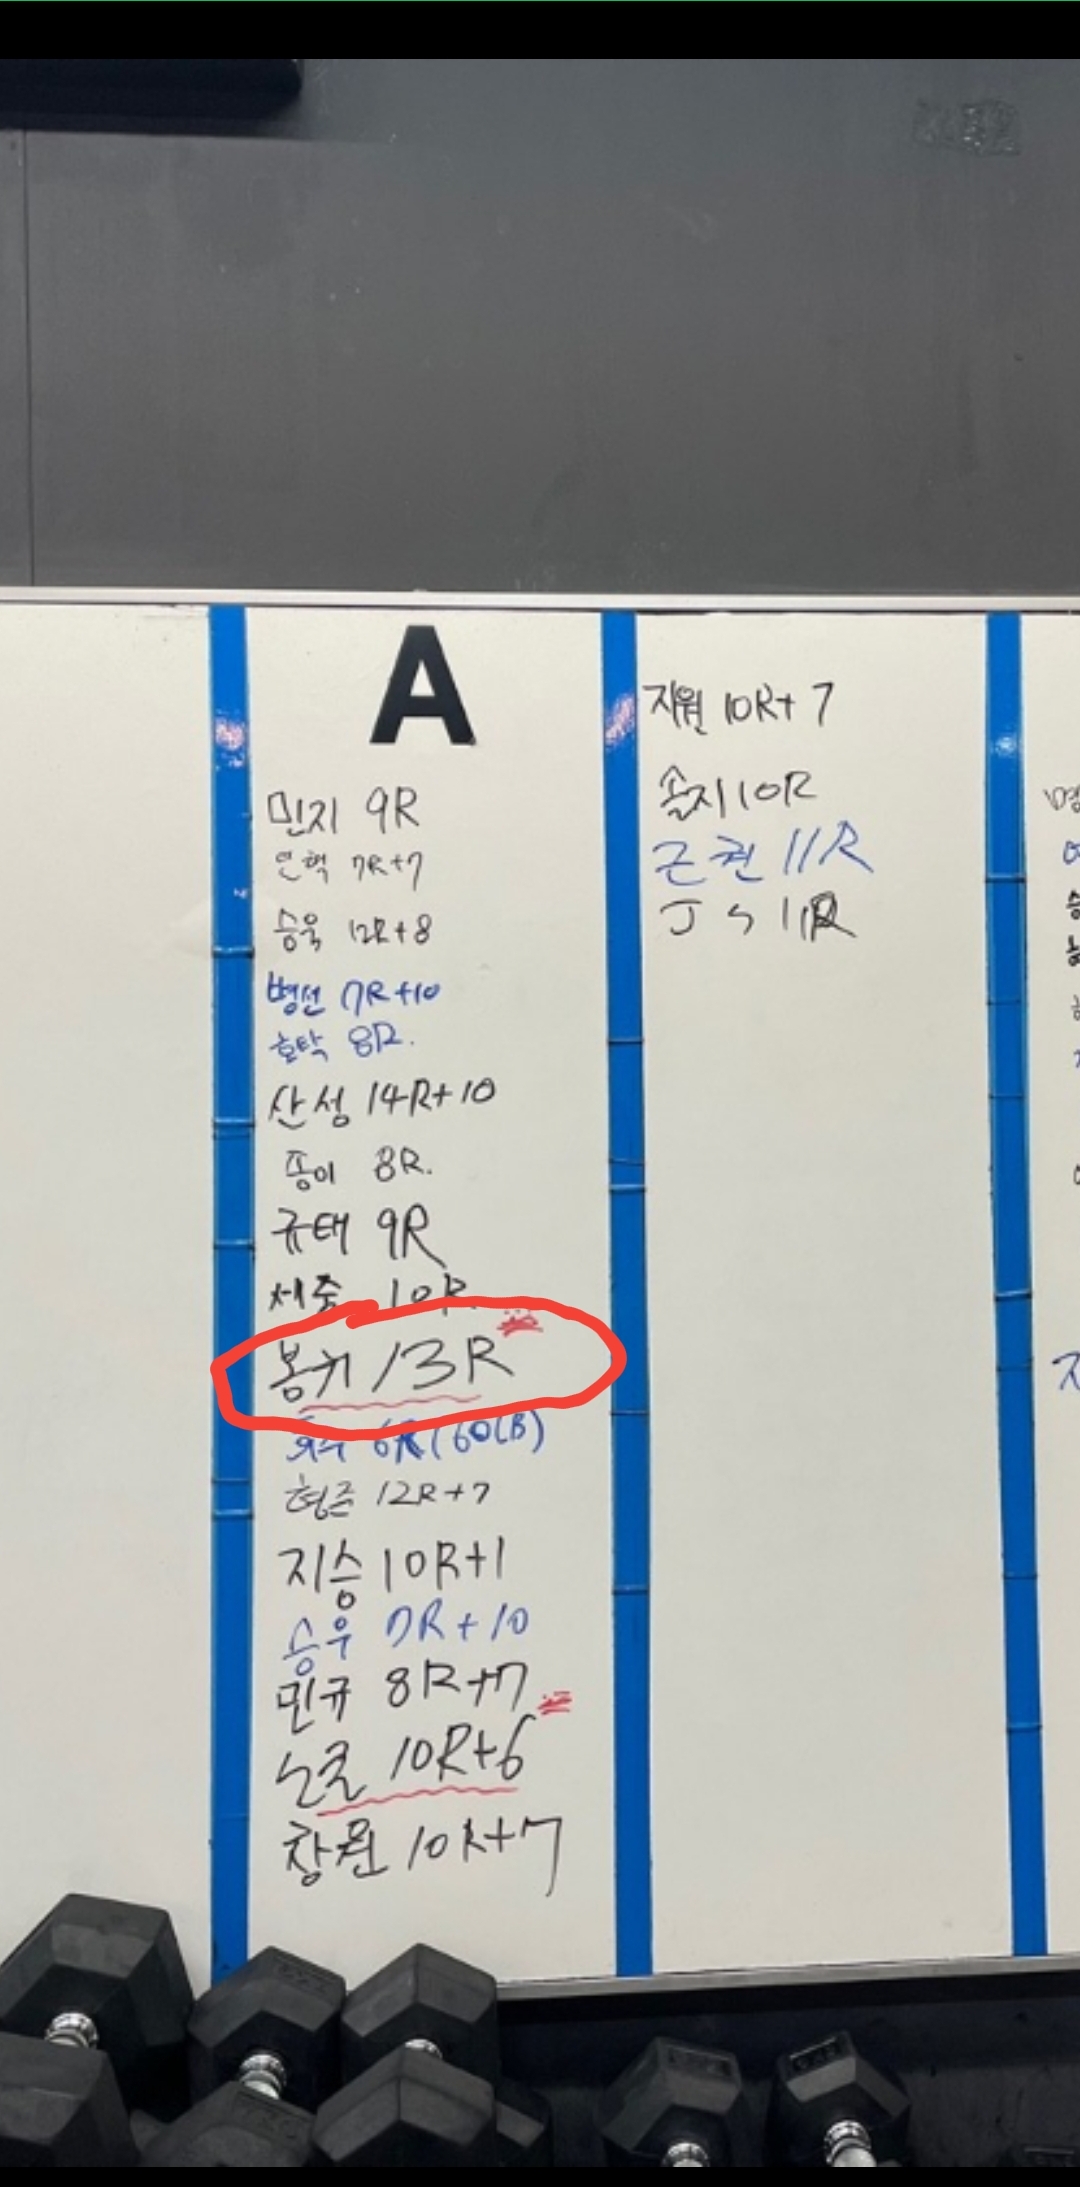 A
민지 9R
인혁 7R+7
승욱 12R+8
병선 7R+10
호탁 8R.
산성 14R+10
종이 8R.
규태 9R
세중 10R
봉키 13R
6R (60LB)
형준 12R+7
지승 10R+1
승우 7R+10
민규 8R+7
10R+6
창원 10R+7
지원 10R+7
솔지 10R
근권 11R
JS 11R